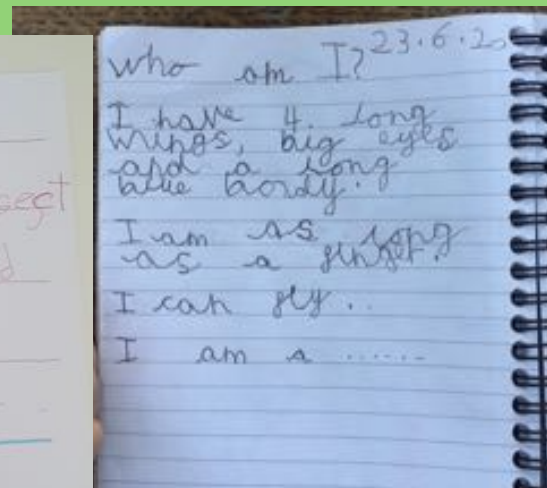 sect
d
who am I? 23.6.20
I have 4 long
wings, big eyes
and a long
blue bordy.
I am as long
as a finger.
I can fly ..
I am a ......